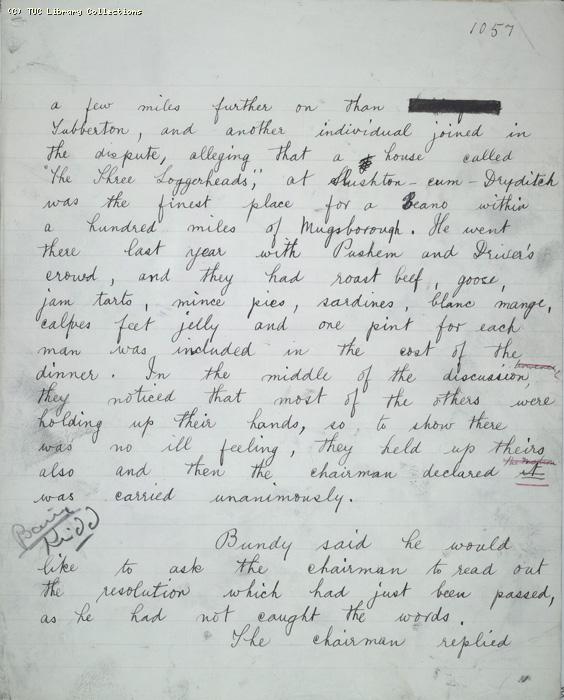 (C) TUC Library Collections
1057
a few miles further on than
Tubberton, and another individual joined in
the dispute, alleging that a house called
"The Three Loggerheads," at Slushton-cum-Dryditch
was the finest place for a Beano within
a hundred miles of Mugsborough. He went
there last year with Pushem and Driver's
crowd, and they had roast beef, goose,
jam tarts, mince pies, sardines, blanc mange,
calves feet jelly and one pint for each
man was included in the cost of the
dinner. In the middle of the discussion,
they noticed that most of the others were
holding up their hands, so to show there
was no ill feeling, they held up theirs
the motion
also and then the chairman declared it
was carried unanimously.
Kidd
Bundy said he would
like to ask the chairman to read out
the resolution which had just been passed,
as he had not caught the words.
The chairman replied